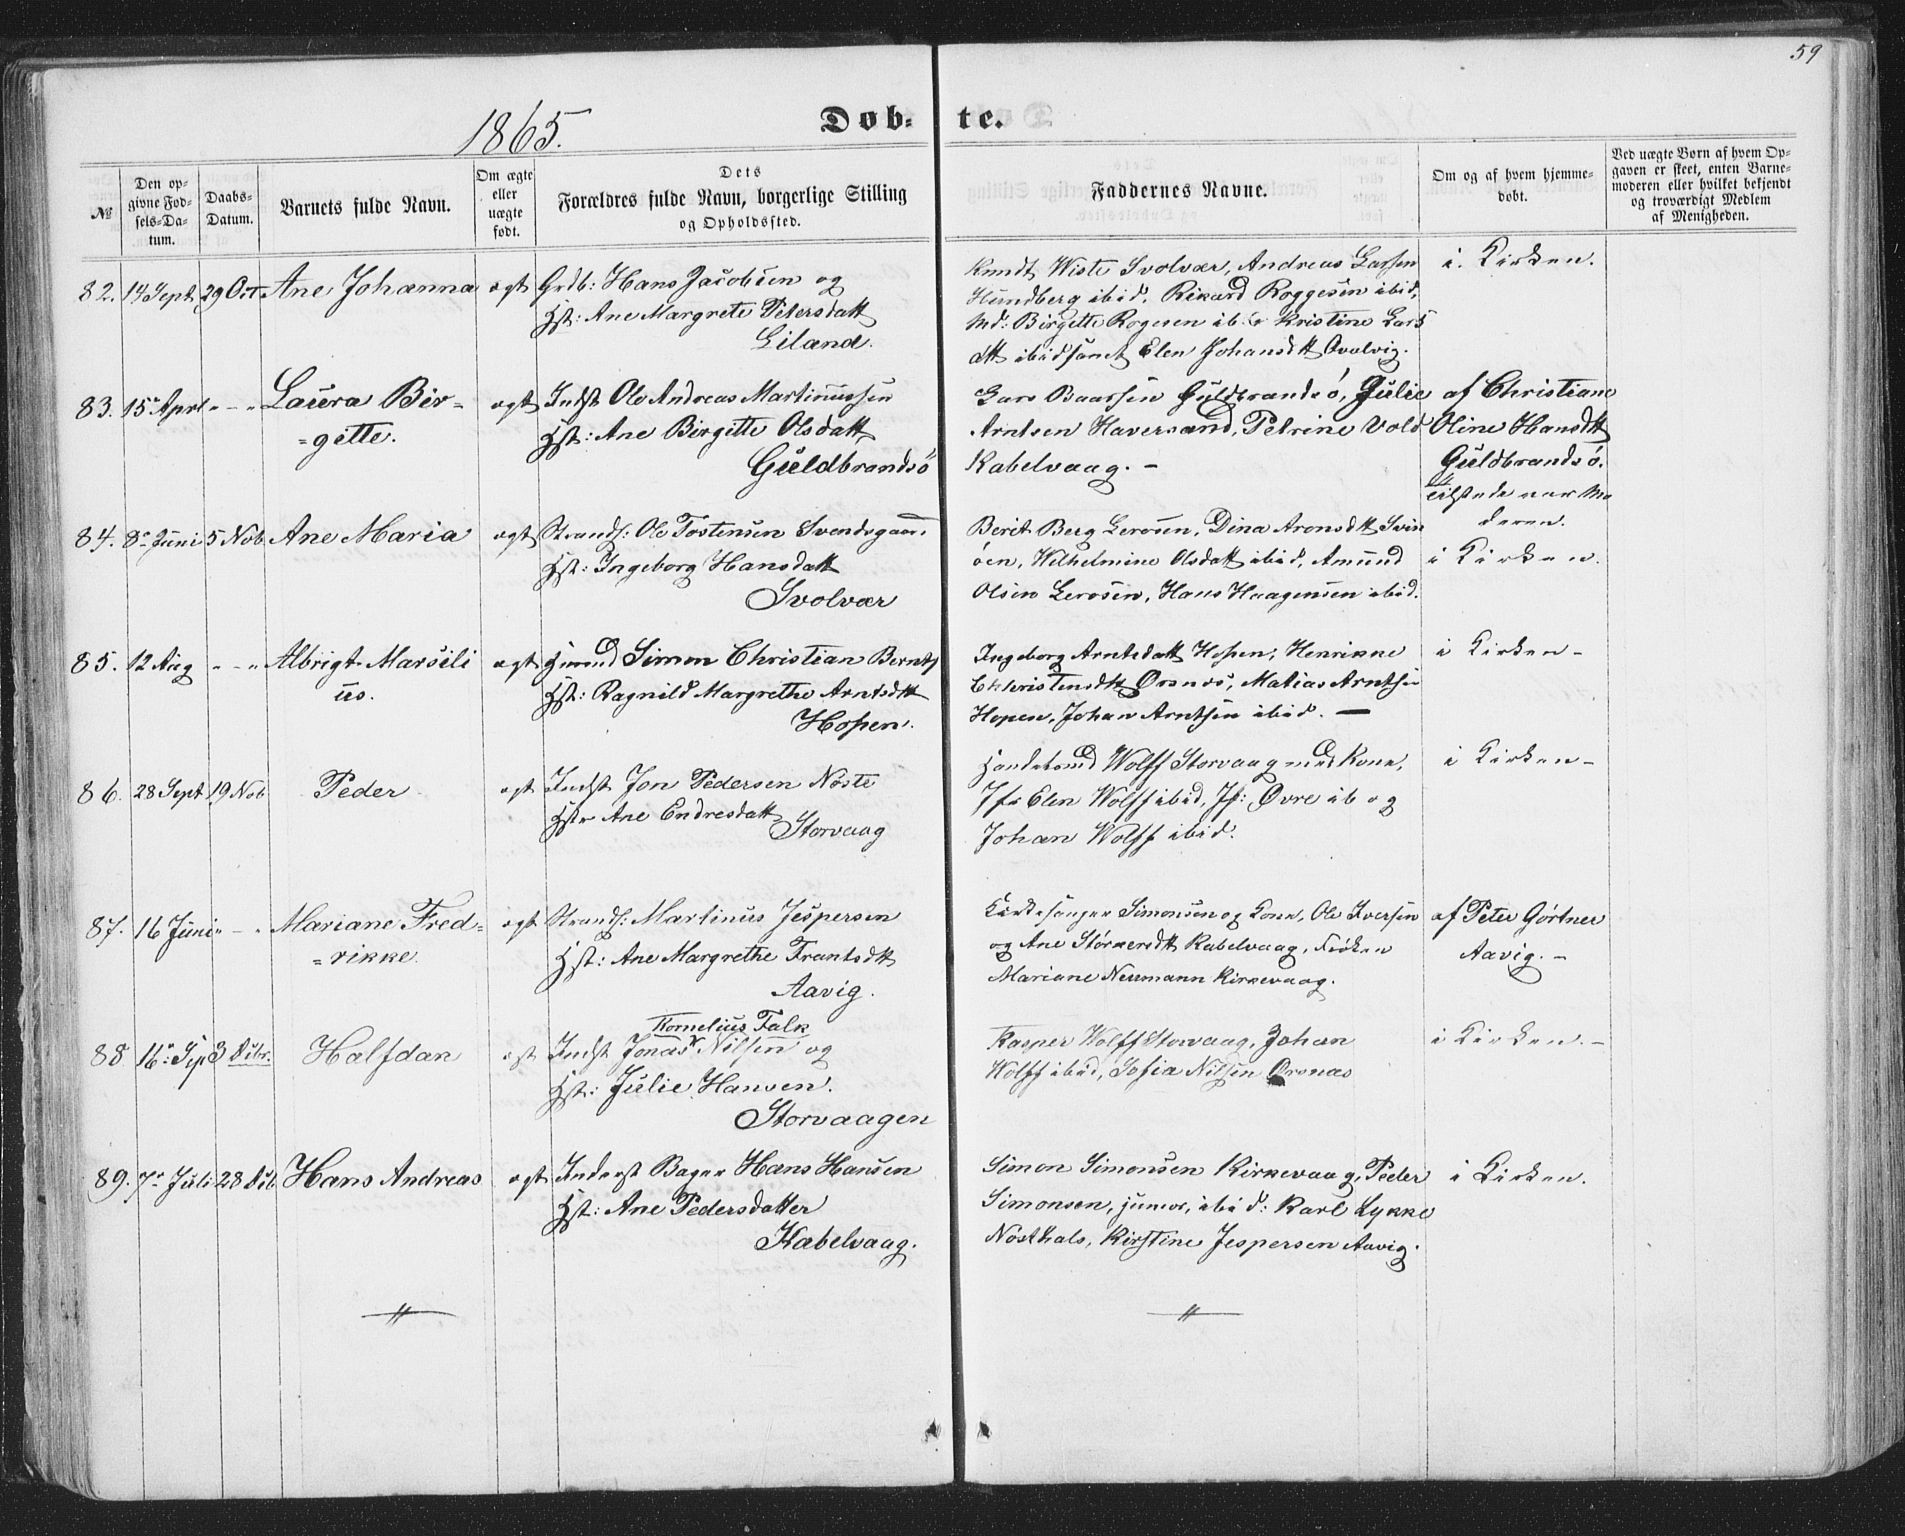 59
1865.
Døb- te.
№
Den op-
givne Fød-
sels-Da-
tum.
Daabs-
Datum.
Barnets fulde Navn.
Om ægte
eller
uægte
født.
Dets
Forældres fulde Navn, borgerlige Stilling
og Opholdssted.
Faddernes Navne.
Om og af hvem hjemme-
døbt.
Ved uægte Børn af hvem Op-
gaven er skeet, enten Barne-
moderen eller hvilket bekjendt
og troværdigt Medlem
af Menigheden.
82. 14 Sept 29 Oct Ane Johanna ægt Grdb: Hans Jacobsen og
Hst: Ane Margrete Petersdatt
Liland.
Knudt Wiste Svolvær, Andreas Larsen
Hundberg ibid, Rikard Roggesen ibid,
Md: Birgitte Rogesen ib. & Kristine Lars
dtt ibid samt Elen Johansdtt Ovalvig.
i Kirken.
83. 15 Aprl " - " Laura Bir-
=gitte.
ægt Indst Ole Andreas Martinussen
Hst: Ane Birgitte Olsdatt
Guldbrandsø
Lars Baarsen Guldbrandsø, Julie
Arntsen Haversand, Petrine Vold
Kabelvaag. -
af Christiane
Oline Hansdtt
Guldbrandsø.
tilstede var Mo
deren.
84. 8 Juni 5 Nob Ane Maria ægt Strands: Ole Tostensen Svendsgaar
Hst: Ingeborg Hansdatt
Svolvær
Berit Berg Lerosen, Dina Aronsdtt Svin
øen, Wilhelmine Olsdatt ibid, Amund
Olsen Lerosen, Hans Haagensen ibid.
i Kirken.
85. 12 Aug " - " Albrigt Marsili
us.
ægt Hmand Simon Christian Bernts
Hst: Ragnild Margrethe Arntsdtt
Hopen.
Ingeborg Arntsdatt Hopen, Henrikke
Christensdtt Ørsnes, Matias Arntsen
Hopen, Johan Arntsen ibid. —
i Kirken -
86. 28 Sept 19 Nob Peder ægt Indst Jon Pedersen Nøste
Hstr Ane Endresdatt
Storvaag
Handelsmd Wolff Storvaag med Kone,
Jfr Elen Wolff ibid, Jf: Øvre ib og
Johan Wolff ibid.
i Kirken -
87. 16 Juni " - " Mariane Fred-
=rikke.
ægt Strands: Martinus Jespersen
Hst: Ane Margrethe Frantsdtt
Aavig.
Kirkesanger Simonsen og Kone, Ole Iversen
og Ane Størkersdtt Kabelvaag, Frøken
Mariane Normann Kirkevaag.
af Peter Gørtner
Aavig. -
88 16 Sep 3 Dsbr. Halfdan ægt
Kornelius Falk
Indst Jonas Nilsen og
Hst: Julie Hansen.
Storvaagen
Kasper Wolff Storvaag, Johan
Wolff ibid, Sofia Nilsen Ørsnes
i Kirken. -
89. 7 Juli 28 Dsb Hans Andreas ægt Inderst Bager Hans Hansen
Hst: Ane Pedersdatter
Kabelvaag.
Simon Simonsen Kirkevaag, Peder
Simonsen, junior, ibid: Karl Lykke
Nøsthals, Kirstine Jespersen Aavig.
i Kirken.